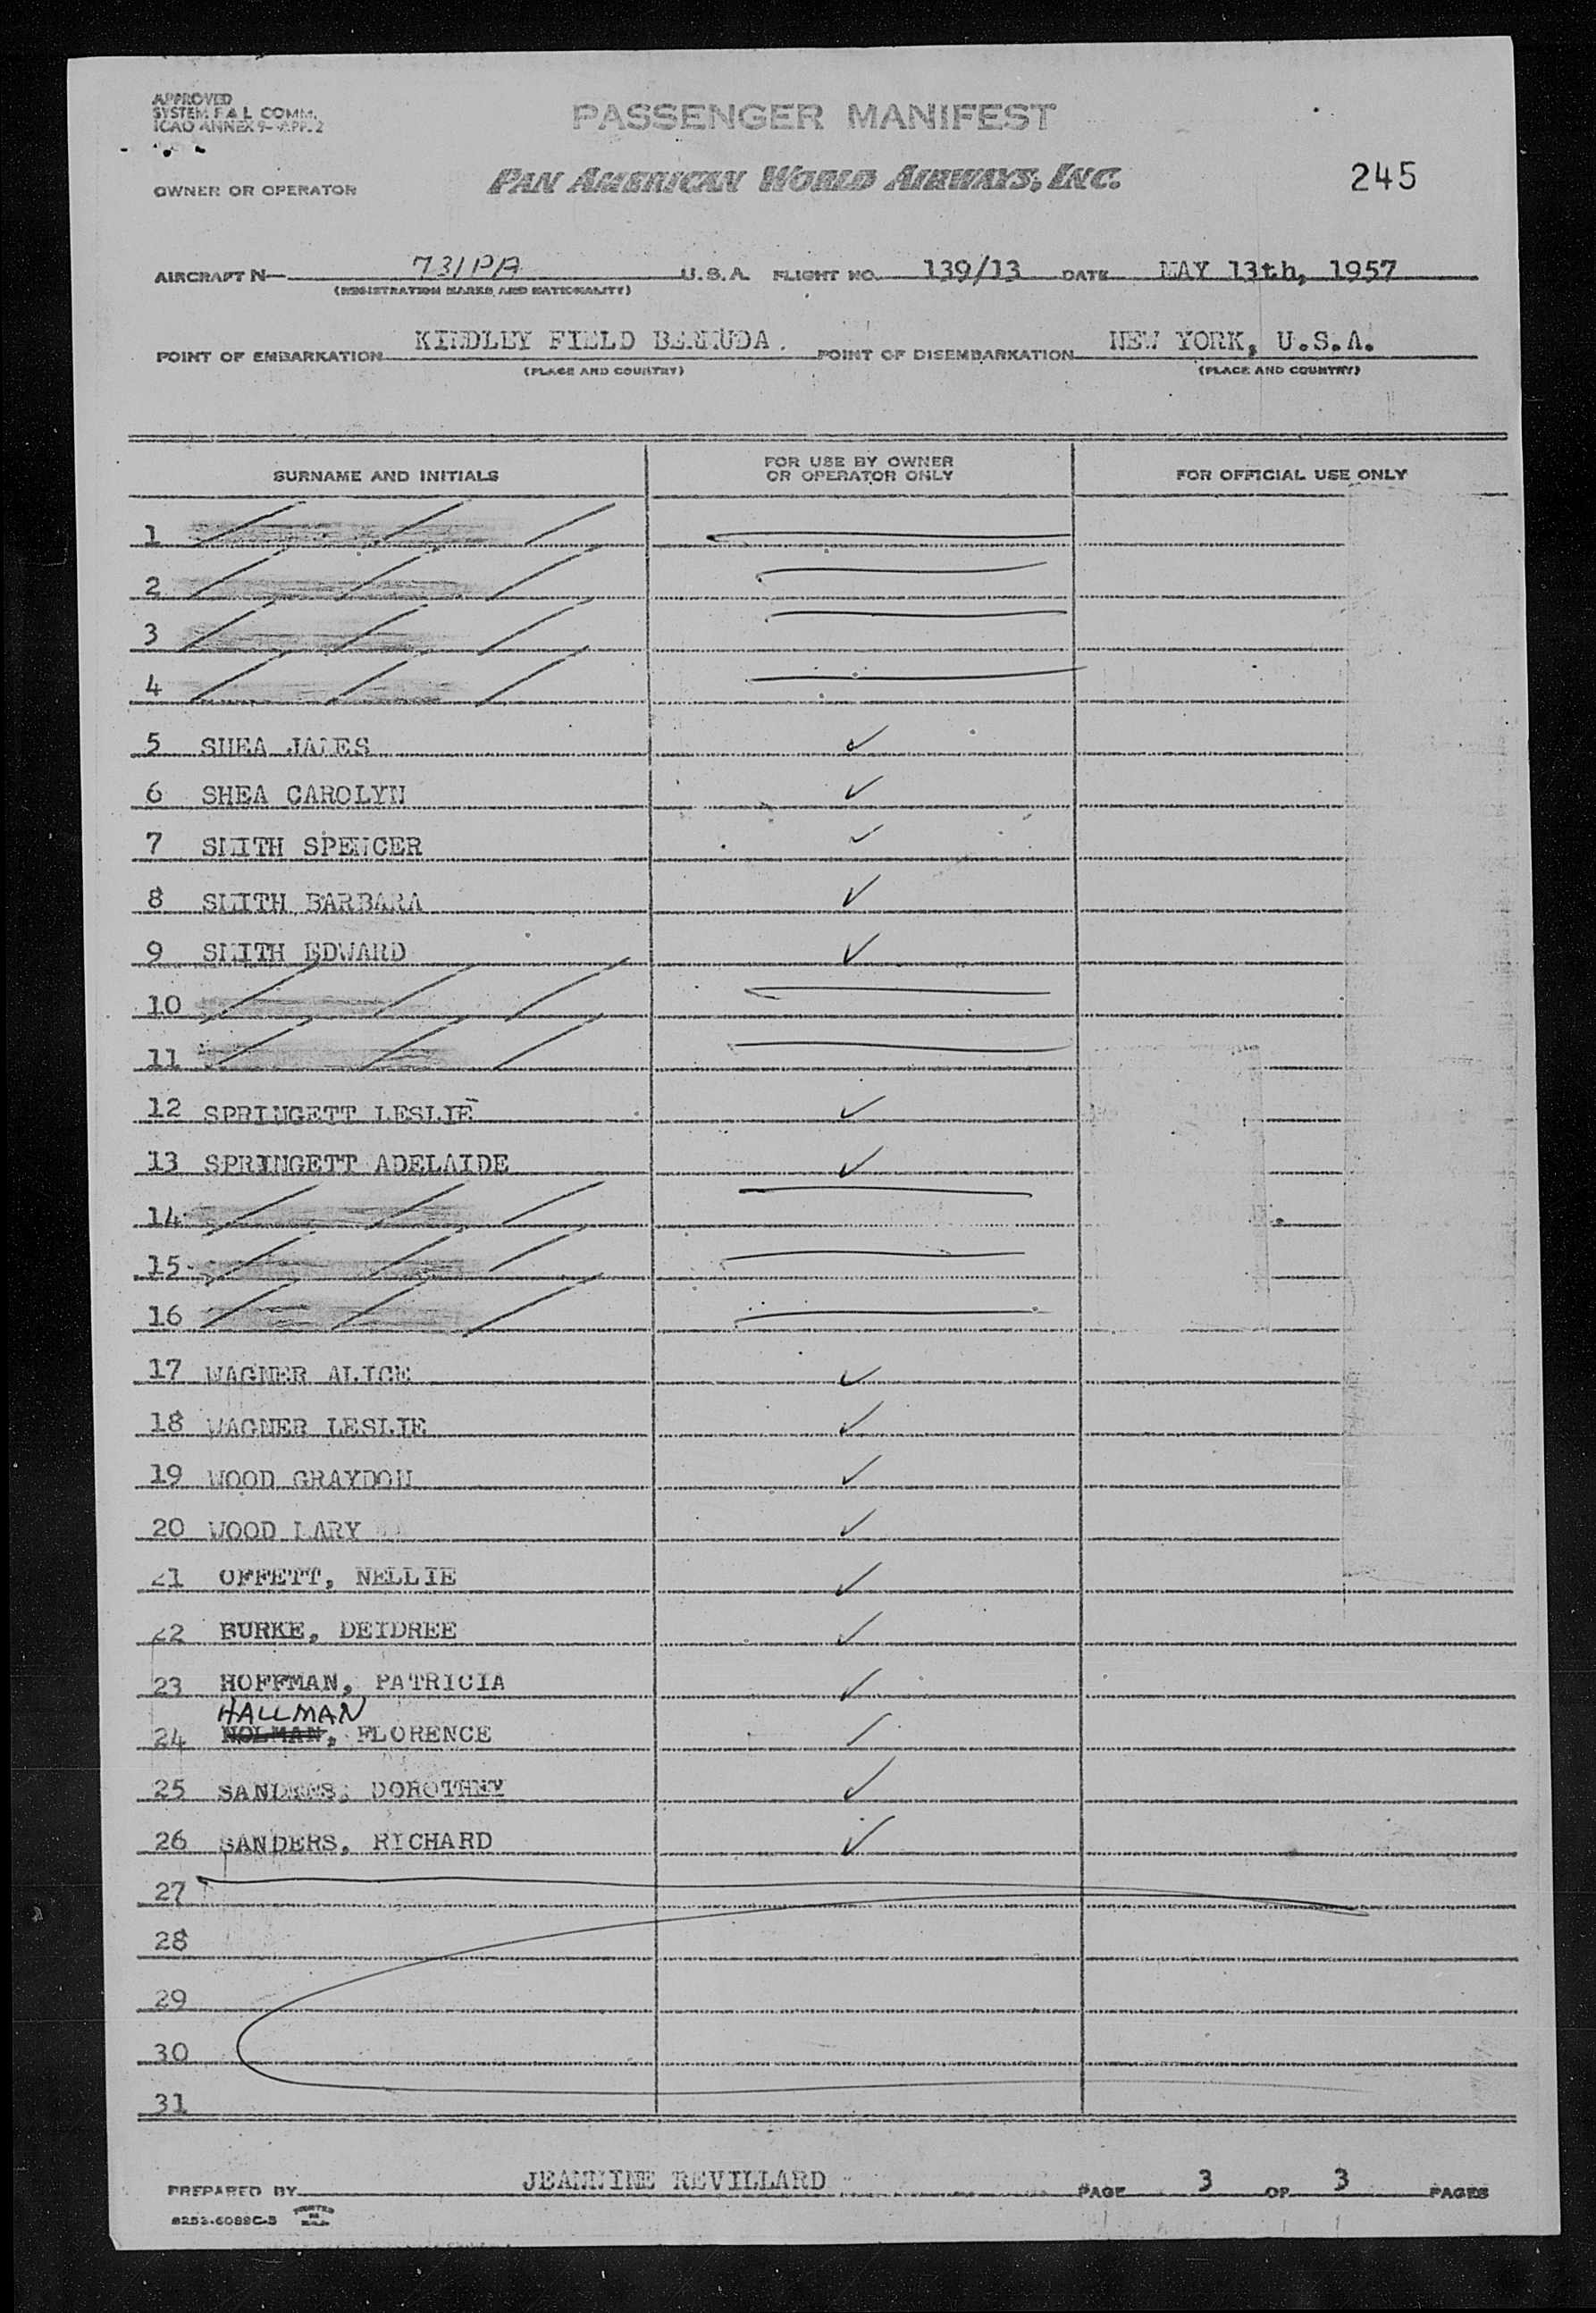 APPROVED
SYSTEM F & L COMM.
ICAO ANNEX 9-APP. 2
PASSENGER MANIFEST
OWNER OR OPERATOR PAN AMERICAN WORLD AIRWAYS, INC. 245
AIRCRAFT N— 731PA U.S.A. FLIGHT NO. 139/13 DATE MAY 13th, 1957
(REGISTRATION MARKS AND NATIONALITY)
POINT OF EMBARKATION KINDLEY FIELD BERMUDA. POINT OF DISEMBARKATION NEW YORK, U.S.A.
(PLACE AND COUNTRY) (PLACE AND COUNTRY)
SURNAME AND INITIALS FOR USE BY OWNER OR OPERATOR ONLY FOR OFFICIAL USE ONLY
1
2
3
4
5 SHEA JAMES ✓
6 SHEA CAROLYN ✓
7 SMITH SPENCER ✓
8 SMITH BARBARA ✓
9 SMITH EDWARD ✓
10
11
12 SPRINGETT LESLIE ✓
13 SPRINGETT ADELAIDE ✓
14
15
16
17 WAGNER ALICE ✓
18 WAGNER LESLIE ✓
19 WOOD GRAYDON ✓
20 WOOD MARY ✓
21 OFFETT, NELLIE ✓
22 BURKE, DEIDREE ✓
23 HOFFMAN, PATRICIA ✓
HALLMAN
24 HOLMAN, FLORENCE ✓
25 SANDERS, DOROTHEY ✓
26 SANDERS, RICHARD ✓
27
28
29
30
31
PREPARED BY JEANNINE REVILLARD PAGE 3 OF 3 PAGES
PRINTED IN U.S.A.